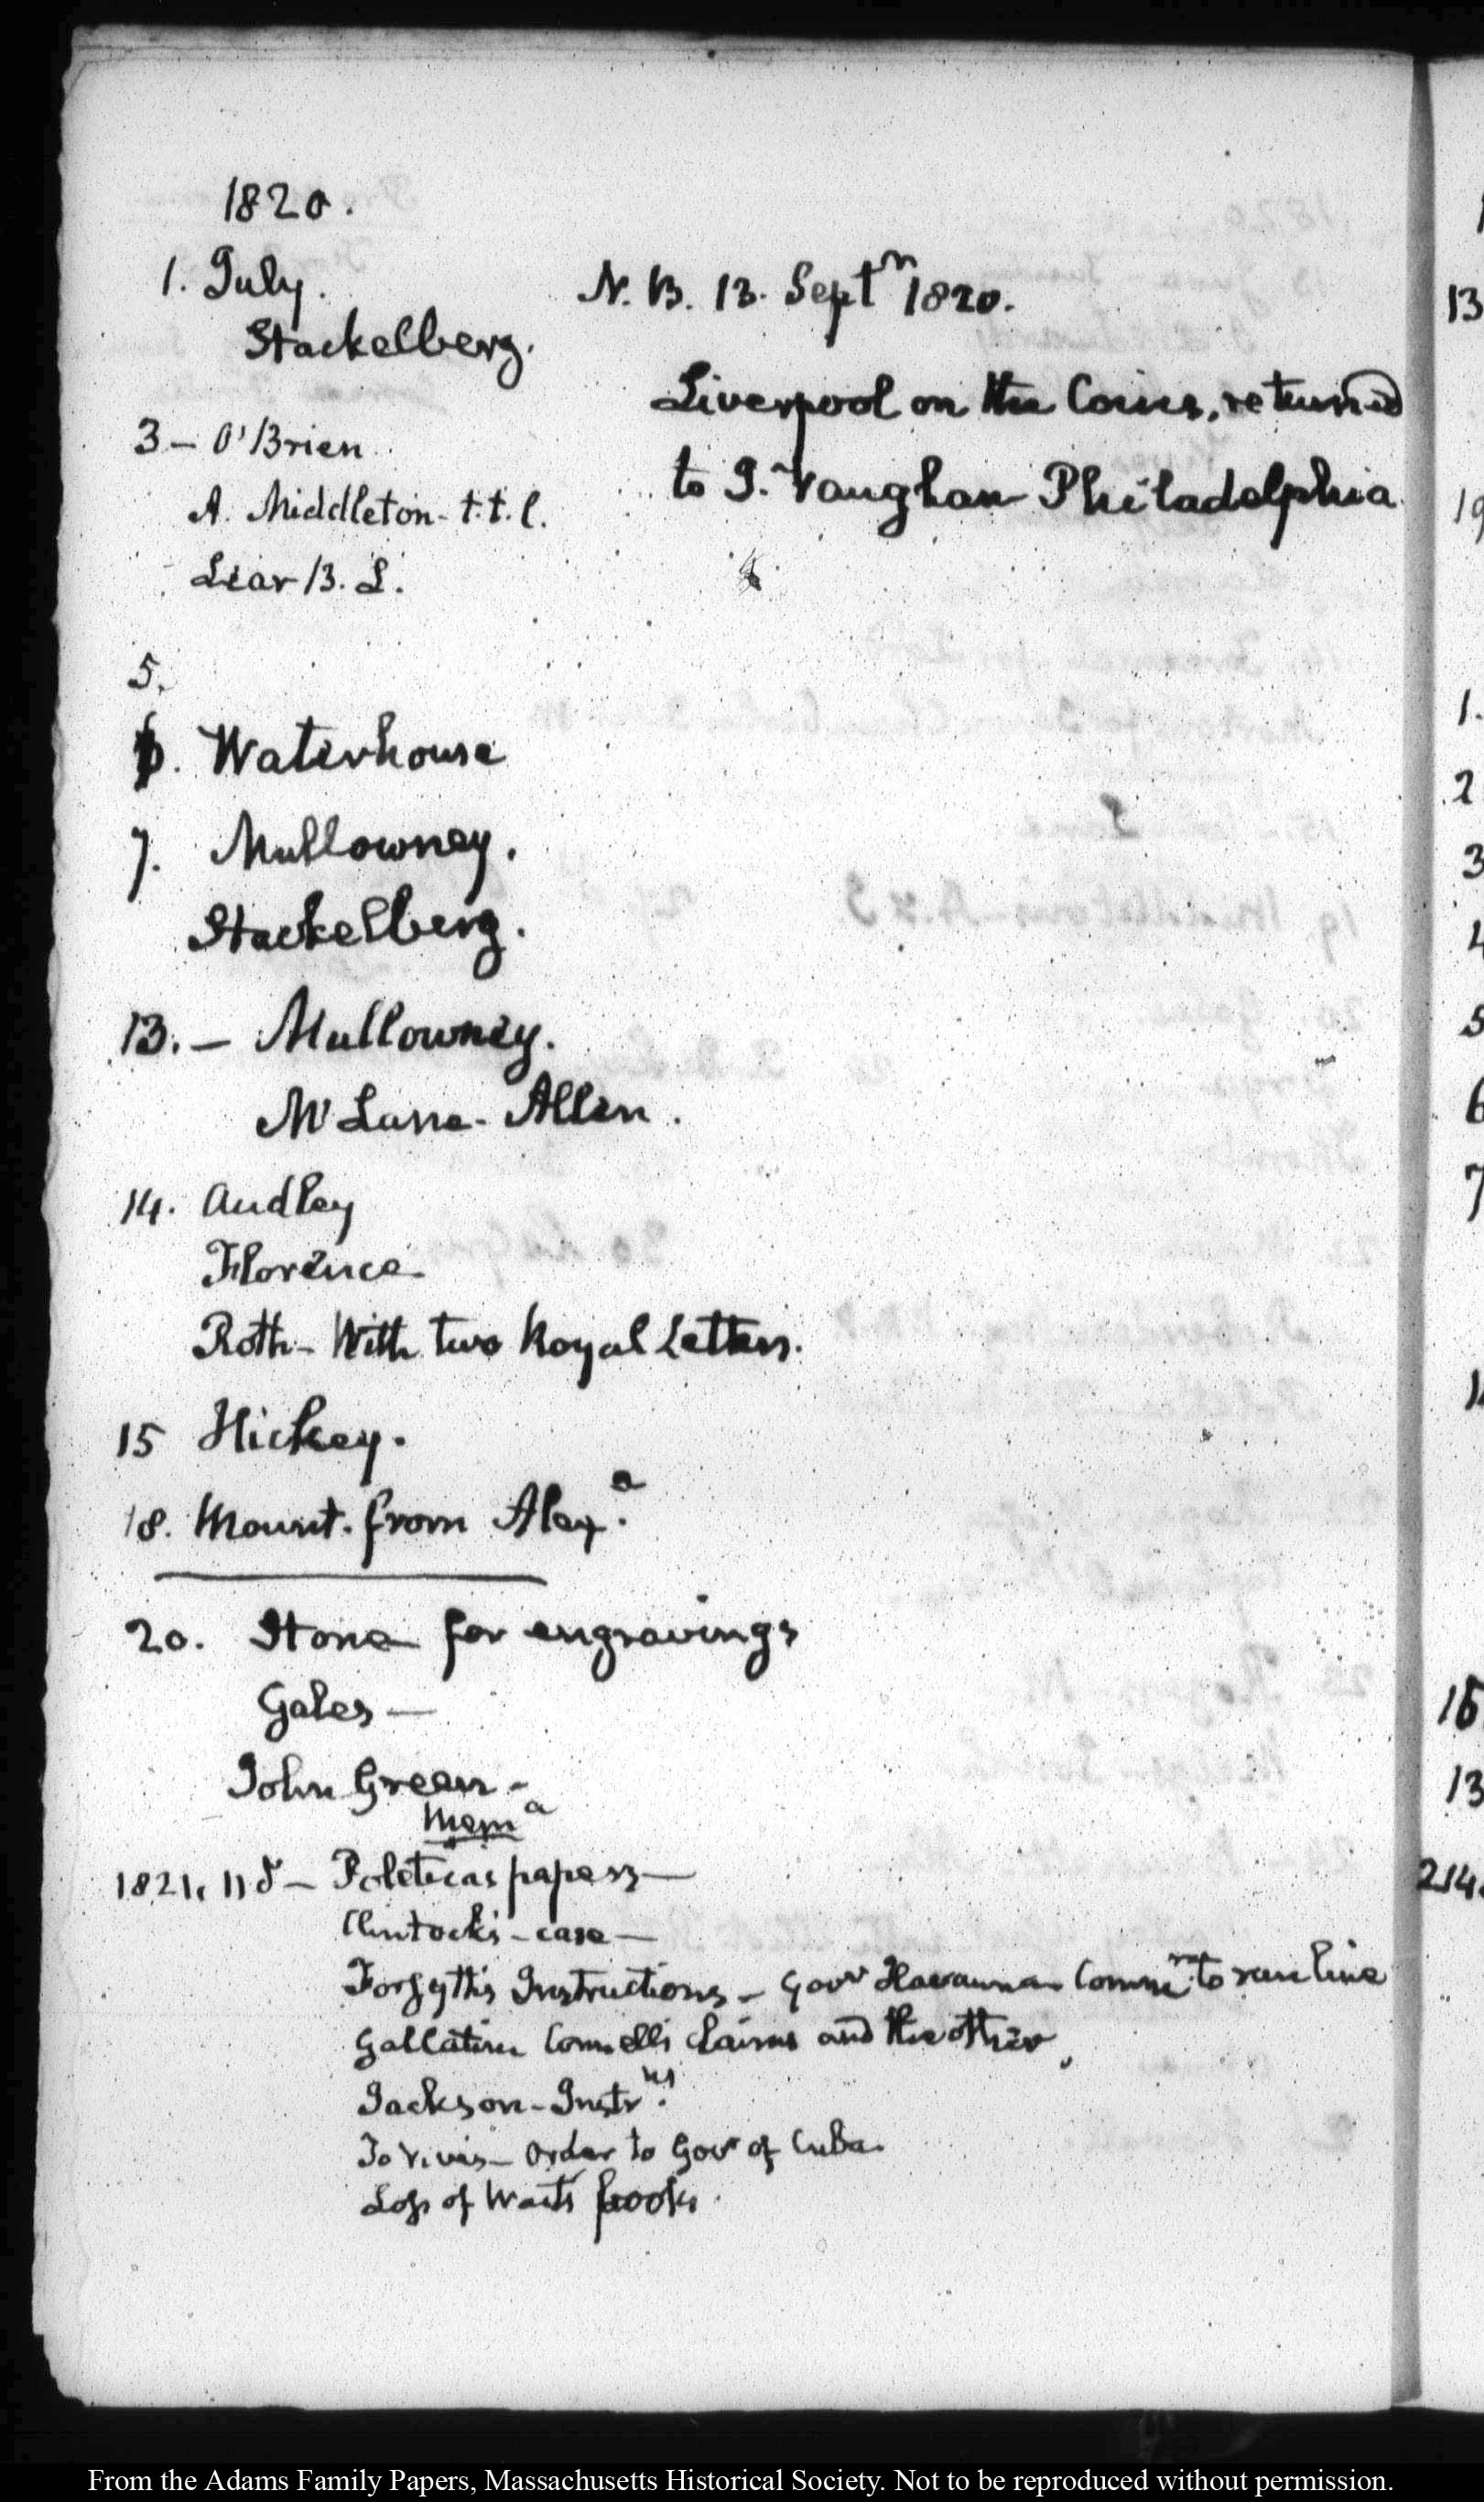 1820.
1. July.
Stackelberg.
N. B. 13. Septr 1820.
Liverpool on the Coins, returned
to J. Vaughan Philadelphia
3 – O'Brien
A. Middleton - t.t.l.
Lear B. L.
5.
6. Waterhouse
7. Mullowney.
Stackelberg.
13. – Mullowney.
McLane - Allen.
14. Audley
Florence
Roth - With two Royal Letters.
15 Hickey.
18. Mount. from Alexa.
20. Stone for engravings
Gales –
John Green -
Mema
1821. – Poleticas papers –
Clintock's - case –
Forsyth's Instructions – Govr Havanna Commr to run line
Gallatin Connell's Claims and the other
Jackson - Instrns.
To Vives – Order to Govr of Cuba.
Loss of Wait's books.
13
19
1.
2
3
4
5
6
7
13
From the Adams Family Papers, Massachusetts Historical Society. Not to be reproduced without permission.